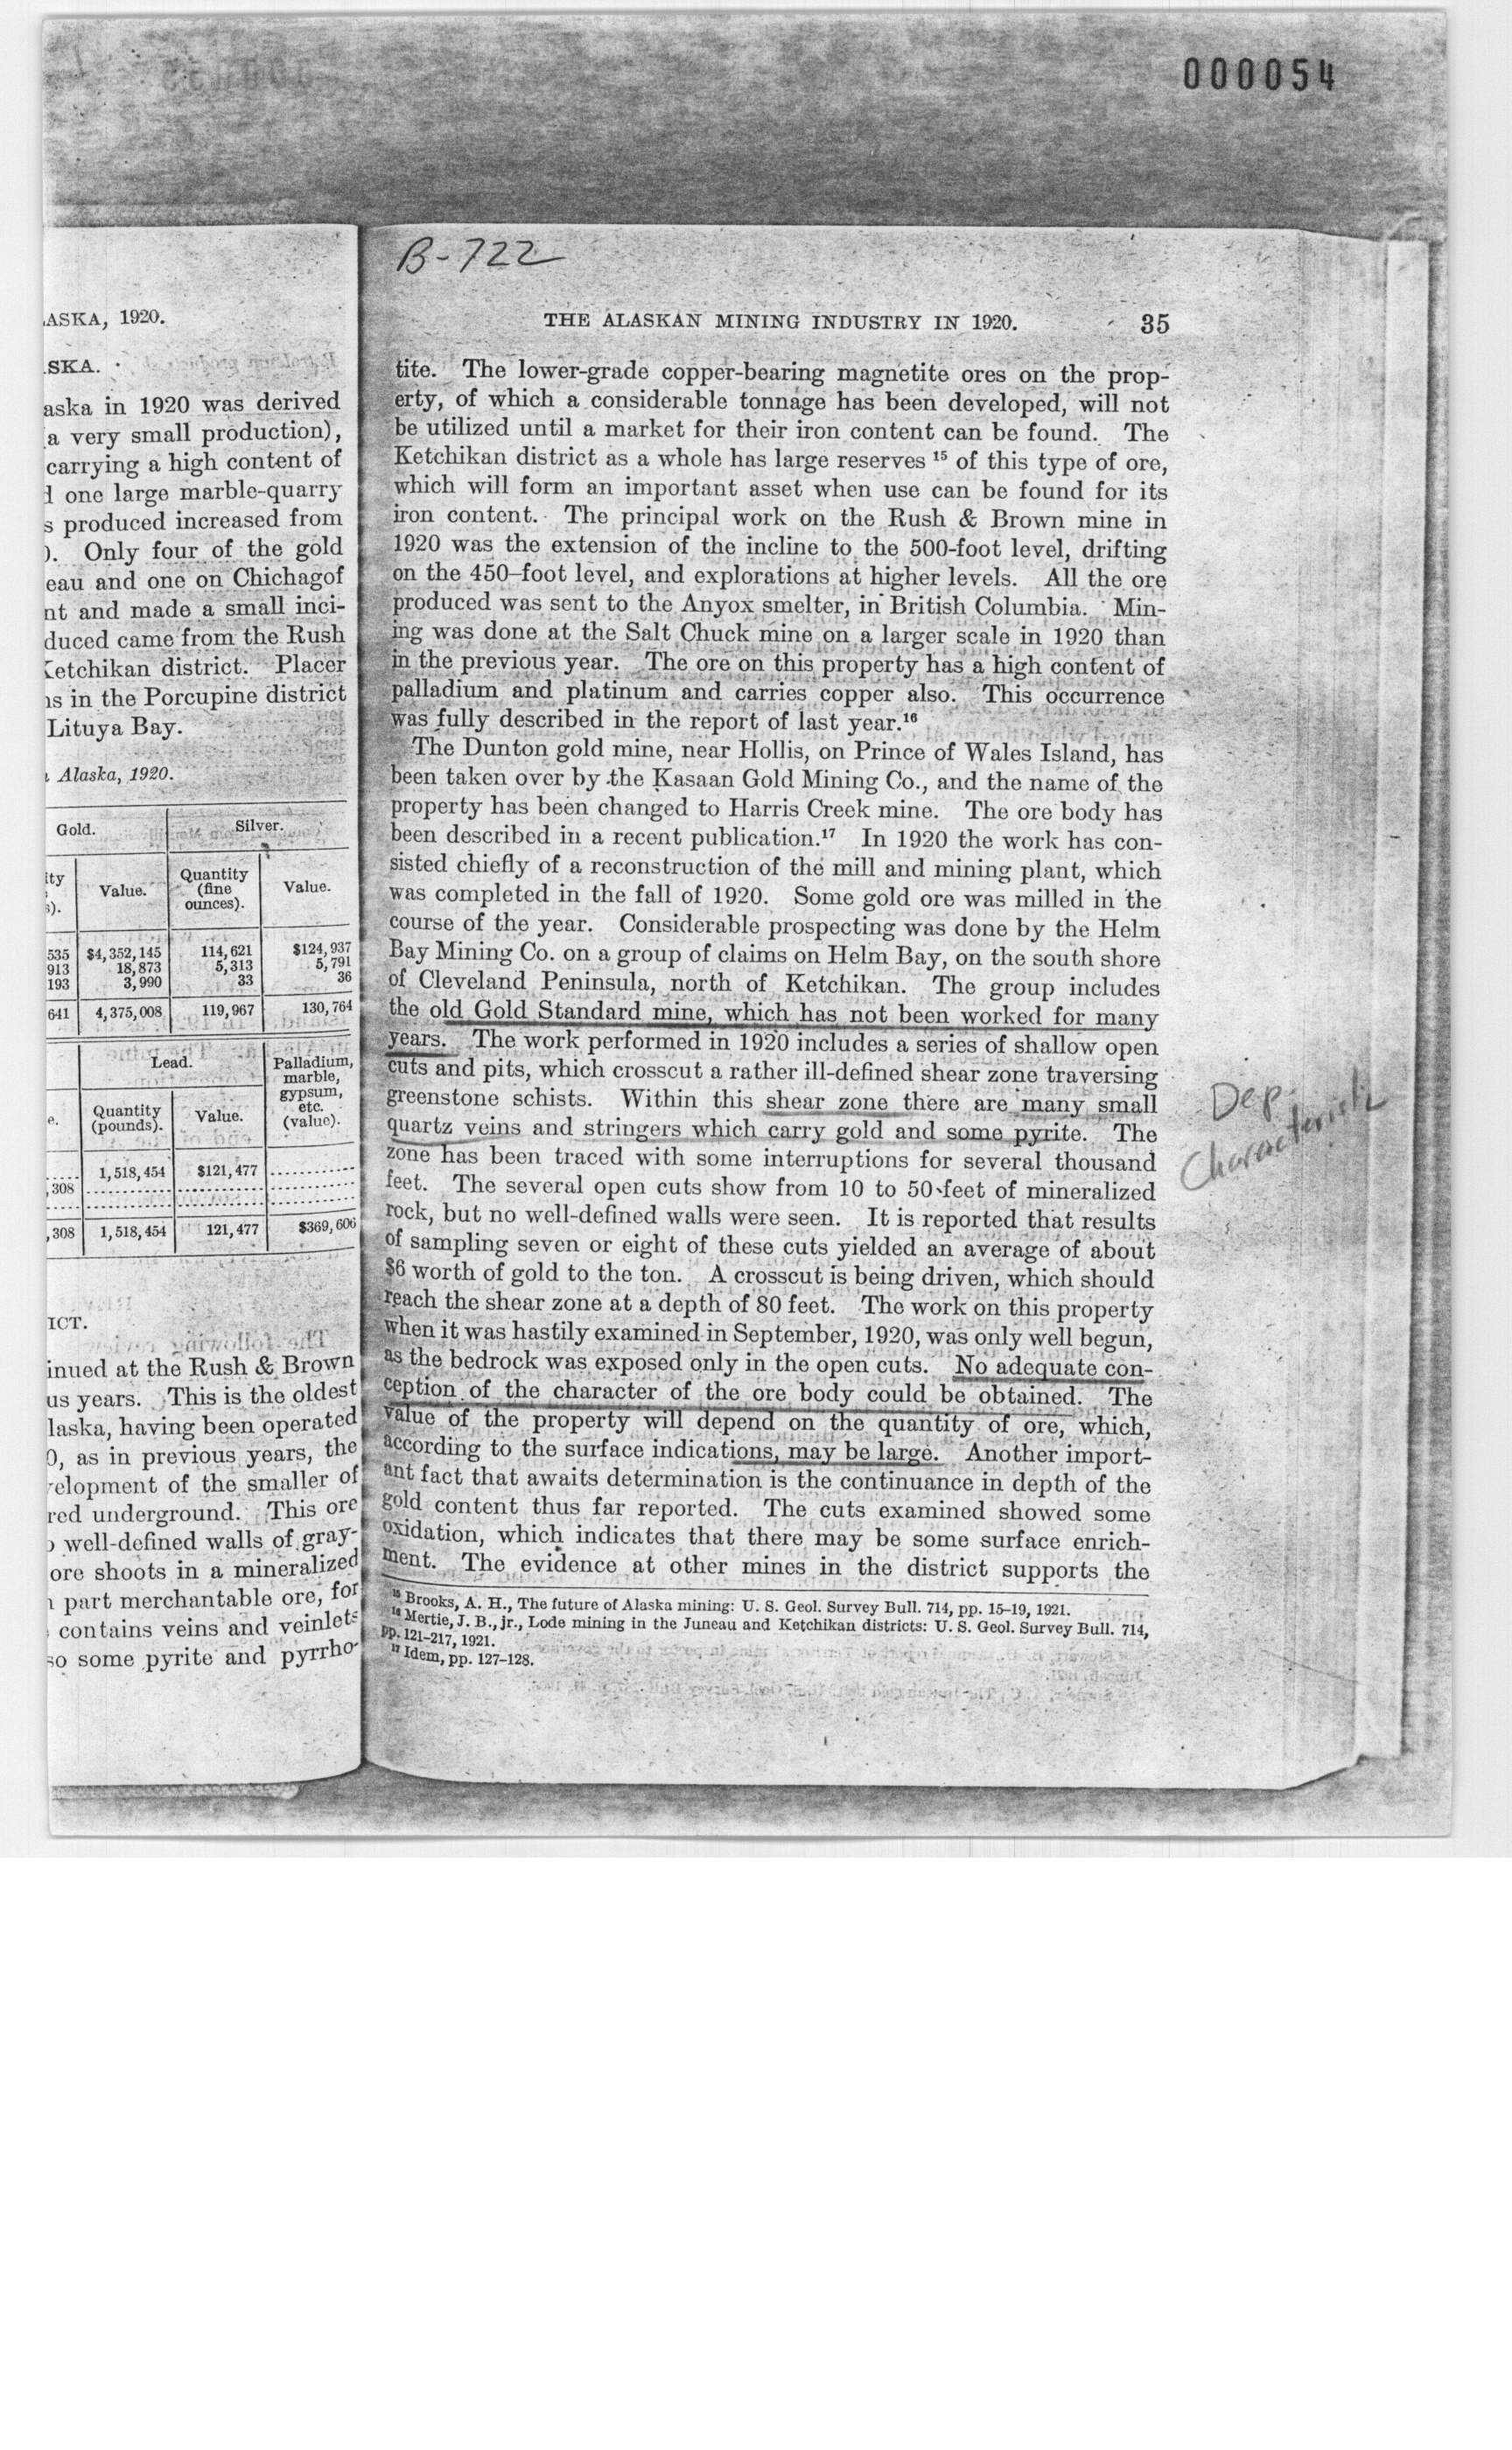 000054
ASKA, 1920.
SKA.
aska in 1920 was derived
a very small production),
carrying a high content of
d one large marble-quarry
s produced increased from
). Only four of the gold
eau and one on Chichagof
nt and made a small inci-
duced came from the Rush
Ketchikan district. Placer
ns in the Porcupine district
Lituya Bay.
Alaska, 1920.
Gold. Silver.
ity
s). Value. Quantity (fine ounces). Value.
535 $4,352,145 114,621 $124,937
913 18,873 5,313 5,791
193 3,990 33 36
641 4,375,008 119,967 130,764
Lead. Palladium, marble, gypsum, etc. (value).
e. Quantity (pounds). Value.
..... 1,518,454 $121,477 ............
,308 ............ ............ ............
..... ............ ............ ............
,308 1,518,454 121,477 $369,606
ICT.
inued at the Rush & Brown
us years. This is the oldest
laska, having been operated
0, as in previous years, the
velopment of the smaller of
red underground. This ore
o well-defined walls of gray-
ore shoots in a mineralized
n part merchantable ore, for
contains veins and veinlets
so some pyrite and pyrrho-
B-722
THE ALASKAN MINING INDUSTRY IN 1920. 35
tite. The lower-grade copper-bearing magnetite ores on the prop-
erty, of which a considerable tonnage has been developed, will not
be utilized until a market for their iron content can be found. The
Ketchikan district as a whole has large reserves 15 of this type of ore,
which will form an important asset when use can be found for its
iron content. The principal work on the Rush & Brown mine in
1920 was the extension of the incline to the 500-foot level, drifting
on the 450-foot level, and explorations at higher levels. All the ore
produced was sent to the Anyox smelter, in British Columbia. Min-
ing was done at the Salt Chuck mine on a larger scale in 1920 than
in the previous year. The ore on this property has a high content of
palladium and platinum and carries copper also. This occurrence
was fully described in the report of last year.16
The Dunton gold mine, near Hollis, on Prince of Wales Island, has
been taken over by the Kasaan Gold Mining Co., and the name of the
property has been changed to Harris Creek mine. The ore body has
been described in a recent publication.17 In 1920 the work has con-
sisted chiefly of a reconstruction of the mill and mining plant, which
was completed in the fall of 1920. Some gold ore was milled in the
course of the year. Considerable prospecting was done by the Helm
Bay Mining Co. on a group of claims on Helm Bay, on the south shore
of Cleveland Peninsula, north of Ketchikan. The group includes
the old Gold Standard mine, which has not been worked for many
years. The work performed in 1920 includes a series of shallow open
cuts and pits, which crosscut a rather ill-defined shear zone traversing
greenstone schists. Within this shear zone there are many small
quartz veins and stringers which carry gold and some pyrite. The
zone has been traced with some interruptions for several thousand
feet. The several open cuts show from 10 to 50 feet of mineralized
rock, but no well-defined walls were seen. It is reported that results
of sampling seven or eight of these cuts yielded an average of about
$6 worth of gold to the ton. A crosscut is being driven, which should
reach the shear zone at a depth of 80 feet. The work on this property
when it was hastily examined in September, 1920, was only well begun,
as the bedrock was exposed only in the open cuts. No adequate con-
ception of the character of the ore body could be obtained. The
value of the property will depend on the quantity of ore, which,
according to the surface indications, may be large. Another import-
ant fact that awaits determination is the continuance in depth of the
gold content thus far reported. The cuts examined showed some
oxidation, which indicates that there may be some surface enrich-
ment. The evidence at other mines in the district supports the
15 Brooks, A. H., The future of Alaska mining: U. S. Geol. Survey Bull. 714, pp. 15-19, 1921.
16 Mertie, J. B., jr., Lode mining in the Juneau and Ketchikan districts: U. S. Geol. Survey Bull. 714,
pp. 121-217, 1921.
17 Idem, pp. 127-128.
Dep.